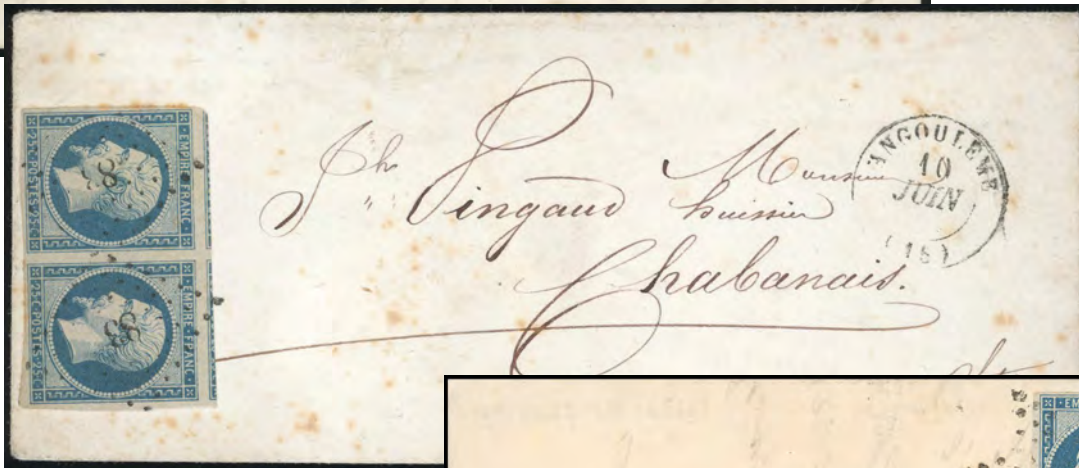 EMPIRE·FRANC·
25c·POSTES·25c
88
EMPIRE·FRANC·
25c·POSTES·25c
88
ANGOULÊME
10
JUIN
(15)
Monsieur
Pingaud huissier
Chabanais.
EM